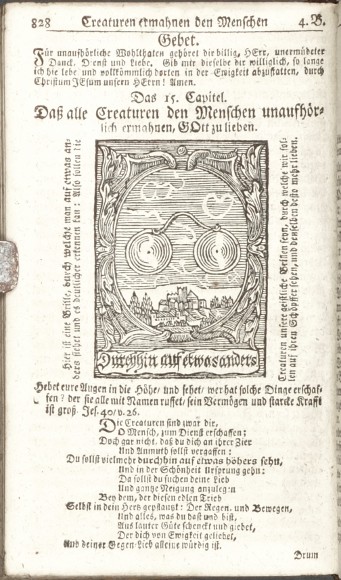 828 Creaturen ermahnen den Menschen 4. B.
Gebet.
Für unaufhörliche Wohlthaten gehöret dir billig, HErr, unermüdeter
Danck, Dienst und Liebe. Gib mit dieselbe dir williglich, so lange
ich hie lebe und vollkömmlich dorten in der Ewigkeit abzustatten, durch
Christum JEsum unsern HErrn! Amen.
Das 15. Capitel.
Daß alle Creaturen den Menschen unaufhör-
lich ermahnen, GOtt zu lieben.
Hier ist eine Brille, durch welche man auf etwas an-
ders siehet und es deutlicher erkennen kan: Also sollen die
Durchhin auf etwas anders
Creaturen unsere geistliche Brillen seyn, durch welche wir sol-
len auf ihren Schöpffer sehen, und denselben desto mehr lieben.
Hebet eure Augen in die Höhe, und sehet, wer hat solche Dinge erschaf-
fen? der sie alle mit Namen ruffet, sein Vermögen und starcke Krafft
ist groß. Jes. 40/ v. 26.
Die Creaturen sind zwar dir,
O Mensch, zum Dienst erschaffen;
Doch gar nicht, daß du dich an ihrer Zier
Und Anmuth sollst vergaffen:
Du sollst vielmehr durchhin auf etwas höhers sehn,
Und in der Schönheit Ursprung gehn:
Da sollst du suchen deine Lieb
Und gantze Neigung anzulegen
Bey dem, der diesen edlen Trieb
Selbst in dein Hertz gepflantzt: Der Regen und Bewegen,
Und alles, was du hast und bist,
Aus lauter Güte schenckt und giebet,
Der dich von Ewigkeit geliebet,
Und deiner Gegen-Lieb alleine würdig ist.
Drum